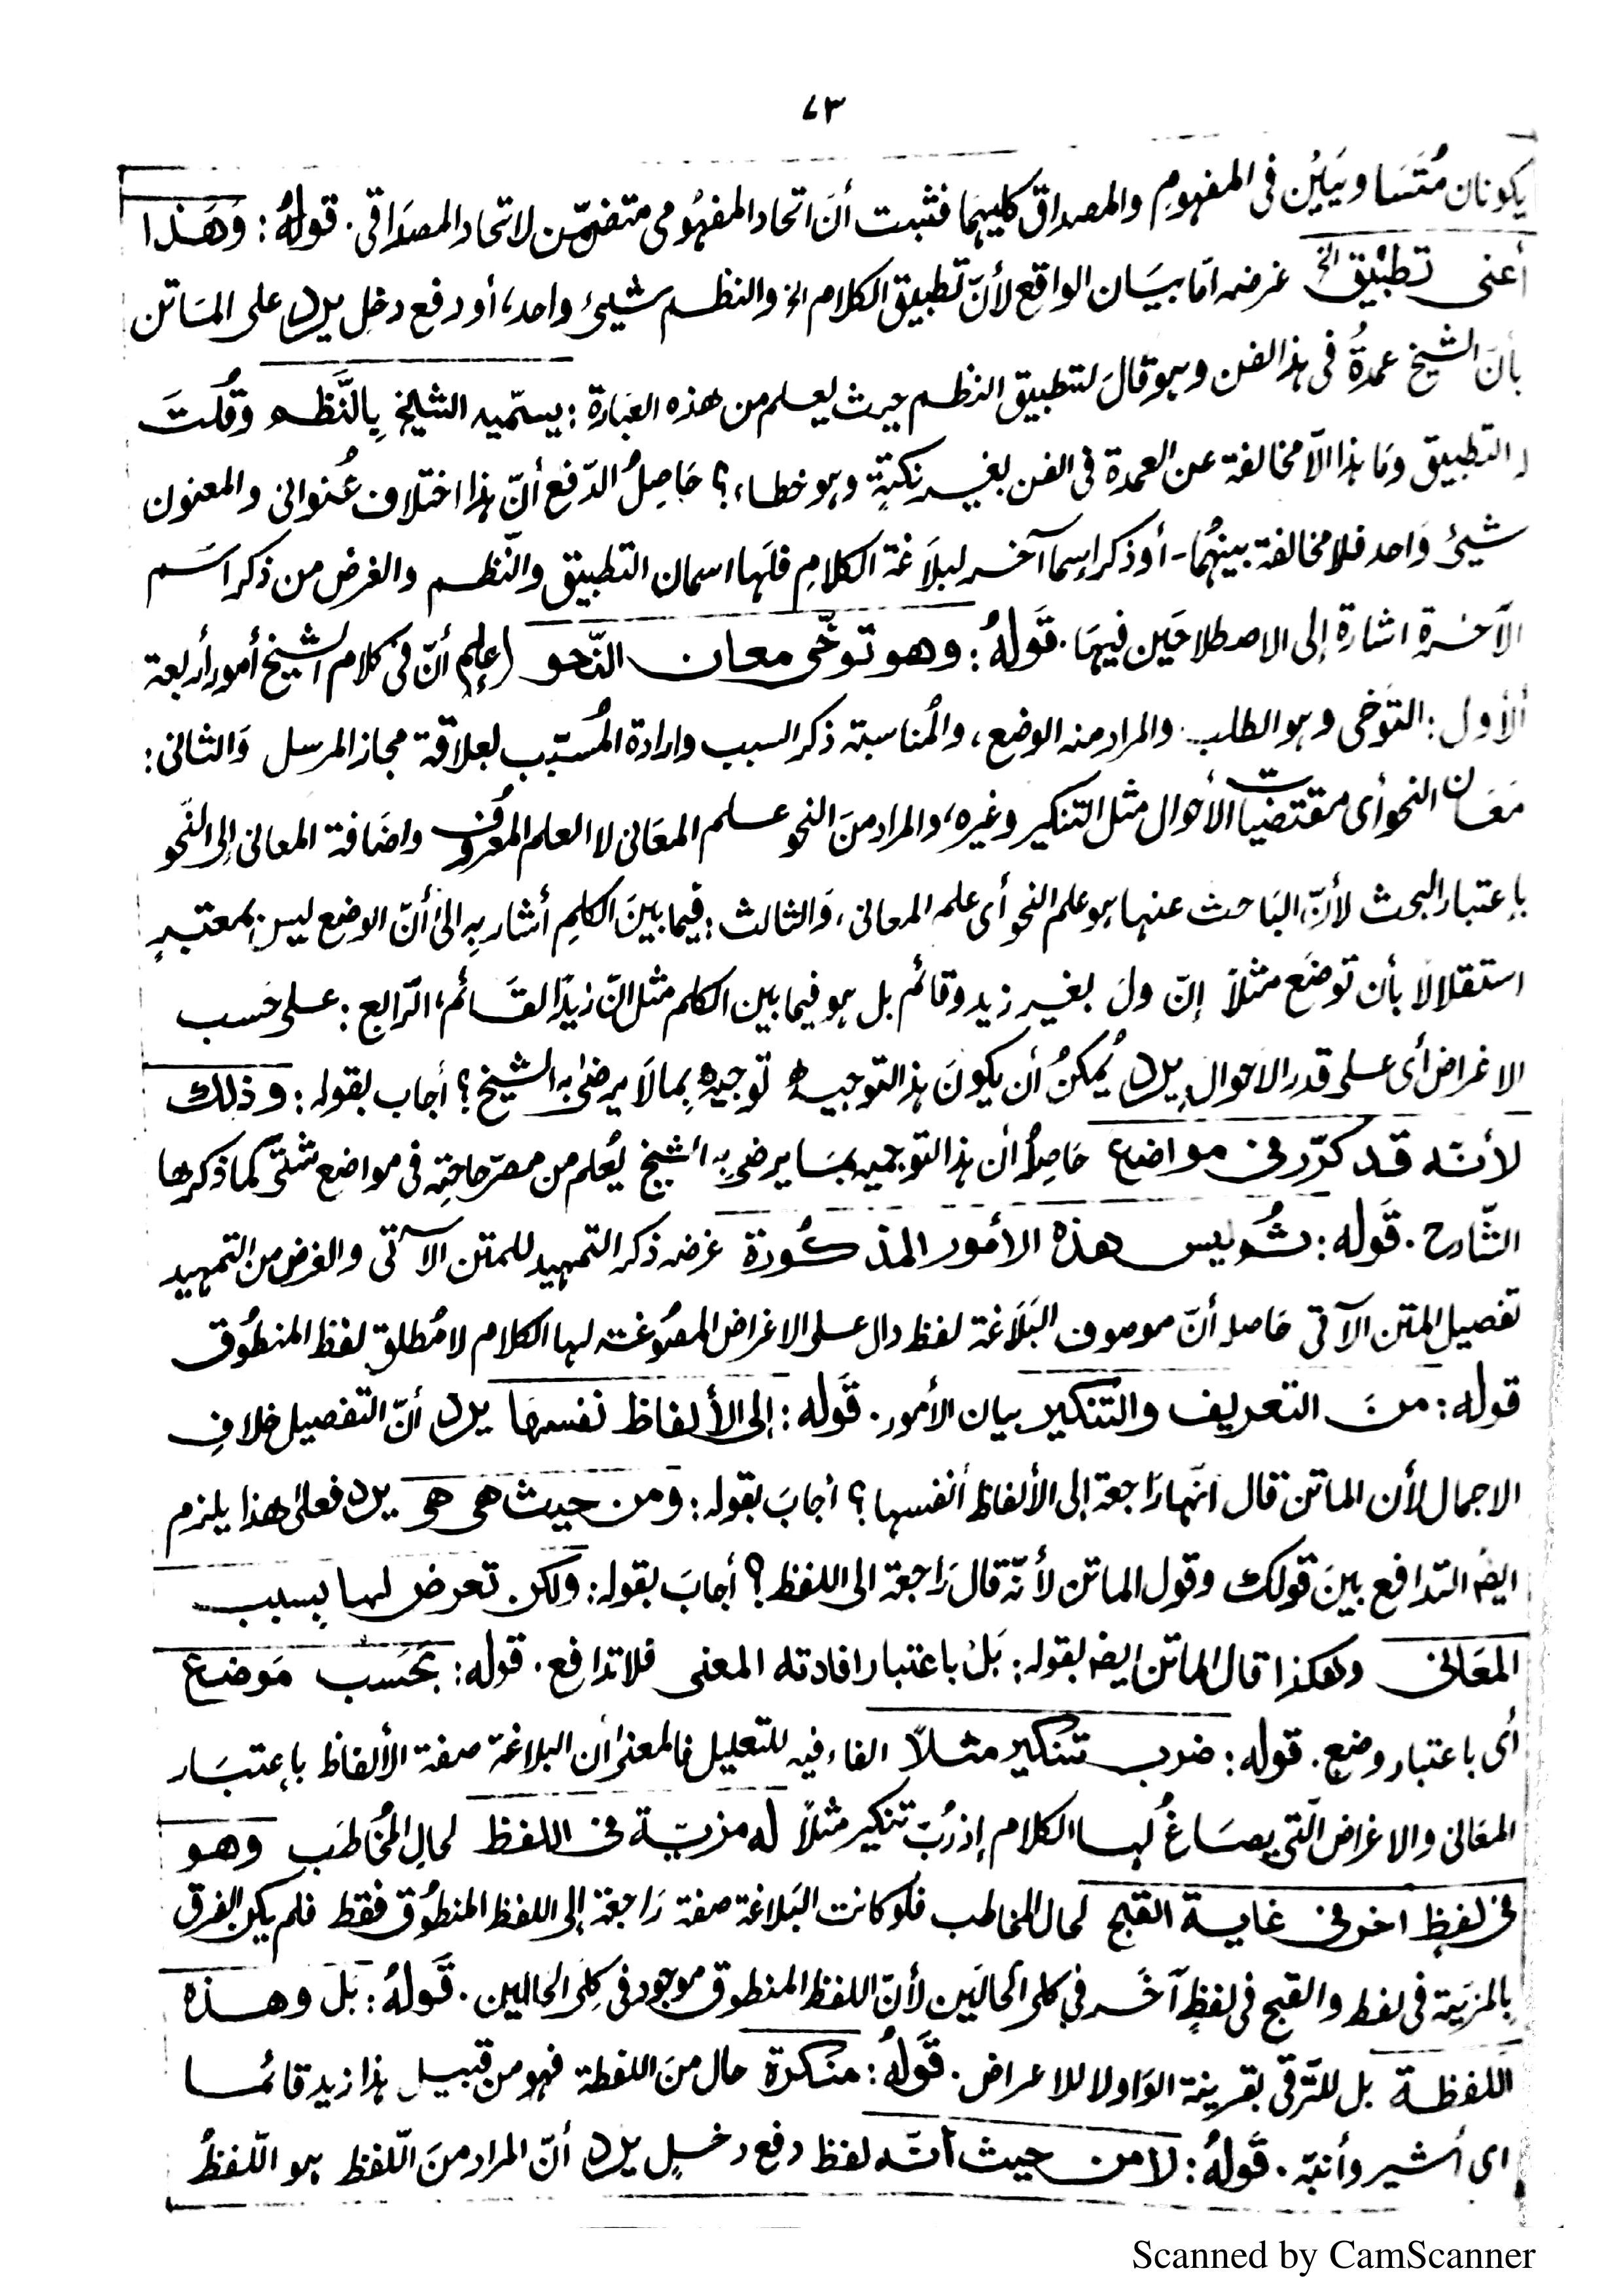 ٧٣
يكونان مُتَسَاويَيْن فى المفهومِ والمصداق كليهما فثبت أنَّ اتحاد المفهُومى متضمّن لاتحاد المصدَاقى. قولهُ: وَهَذا
أعنى تطبيْق الخ غرضه امّا بيَان الواقع لأنّ تطبيق الكلام الخ والنظم شيئ واحد، أو دفع دخل يرد على المَاتن
بأنّ الشيخ عمدةُ فى هذا الفن وهو قالَ لتطبيق النظم حيث يعلم من هذه العبَارة: يسمّيه الشيخ بِالنَّظم وقُلتَ
لـه التطبيق ومَا هذا الّا مخالفة عن العمدة فى الفن بغير نكتةٍ وهو خطاء؟ حَاصِلُ الدّفع أنّ هذا اختلاف عُنوانى والمعنون
شيئ وَاحد فلا مخالفة بينهُما - أو ذكر إسما آخر لبلَاغة الكلامِ فلَها اسمان التطبيق والنّظم والغرض من ذكر اسَم
الآخرة اشارة إلى الاصطلاحَين فيهَا. قَولهُ: وهو توخّى معان النّحو (إعلم أنّ فى كلام الشيخ أمور أربعة
ألأول: التوَخى وهو الطلب والمراد منه الوضع، والمُناسبة ذكر السبب وارادة المُسبّب لعلاقة مجاز المرسل وَالثانى:
مَعَان النحو أى مقتضيات الأحوال مثل التنكير وغيره، والمراد منَ النحو علم المعَانى لا العلم المعرُوف واضَافة المعانى إلى النّحو
بإعتبار البحث لأنّ البَاحث عنها هو علم النحو أى علم المعانى، وَالثالث: فيما بينَ الكلمِ أشار بِه الىٰ أنّ الوضع ليس بمعتبرٍ
استقلالًا بأن توضَع مثلاً إنّ ولَ بغير زيد وقائم بل هو فيما بين الكلم مثل انّ زيدًا لقَائم، الرّابع: على حَسب
الاغراض أى على قدر الاحوال يرد يُمكنُ أن يكونَ هذا التوجيه توجيه بِمالَا يرضىٰ به الشيخ؟ أجاب بقوله: وذلك
لأنّه قد كرّر فى مواضع حَاصِلهُ أن هذا التوجيه بمَا يرضىٰ بِه الشيخ يُعلم من مصرّحاتِه فى مواضع شتّى كما ذكرها
الشّارح. قَوله: ثُم ليس هذه الأمور المذكُورة غرضه ذكر التمهيد للمتن الآتى والغرض من التمهيد
تفصيل المتن الآتى حَاصله أنّ موصوف البَلَاغة لفظ دال على الاغراض المصُوغة لها الكلام لا مُطلق لفظ المنطوُق
قوله: منَ التعريف والتّنكير بيان الأمور. قَوله: إلى الألفاظ نفسهَا يرد أنّ التفصيل خلافِ
الاجمال لأن الماتن قال انّها رَاجعة إلى الألفاظ أنفسها؟ أجابَ بقوله: ومن حيث هى هى يرد فعلىٰ هذا يلزم
ايضً التدافع بينَ قولك وقول الماتن لأنّه قال رَاجعة الى اللفظ؟ أجابَ بقوله: ولكن تعرض لها بِسبب
المعَانى وهكذا قال الماتن ايضً بقوله: بَلْ باعتبار افادته المعنى فلا تدافع. قوله: بحَسب مَوضع
أى باعتبار وضع. قوله: ضرب تنكير مثلاً الفاء فيه للتعليل فالمعنىٰ أن البلاغة صفة الألفاظ بإعتبَار
المعَانى والاغراض الّتى يصَاغُ لها الكلام إذ رُبّ تنكير مثلاً له مزيّة فى اللفظ لحالِ المُخاطَب وهو
فى لفظٍ اخر فى غاية القبح لحال المخاطب فلو كانت البَلاغة صفة رَاجعة إلى اللفظ المنطوُق فقط فلم يكن الفرق
بِالمزيَة فى لفظ والقبح فى لفظٍ آخَر فى كلى الحالَين لأنّ اللفظ المنطوق موجود فى كِلى الحالين. قَولهُ: بَل وهذه
اللفظة بل للتّرقى بقرينة الوَاو لا للاعراض. قَولُهُ: منكرة حال منَ اللفظة فهو من قبيل هذا زيد قائما
اى أشير وأنبّه. قَولهُ: لا من حيث انّه لفظ دفع دخلٍ يرد أنّ المراد منَ اللّفظ هو اللّفظُ
Scanned by CamScanner